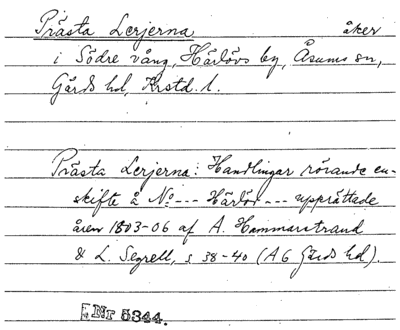 Prästa Lerjerna åker
i Södre vång, Härlövs by, Åsums sn,
Gärds hd, Krstd. l.
Prästa Lerjerna: Handlingar rörande en-
skifte å No --- Härlöv --- upprättade
åren 1803-06 af A. Hammarstrand
& L. Segrell, s 38-40 (A 6 Gärds hd).
Nr 5344.